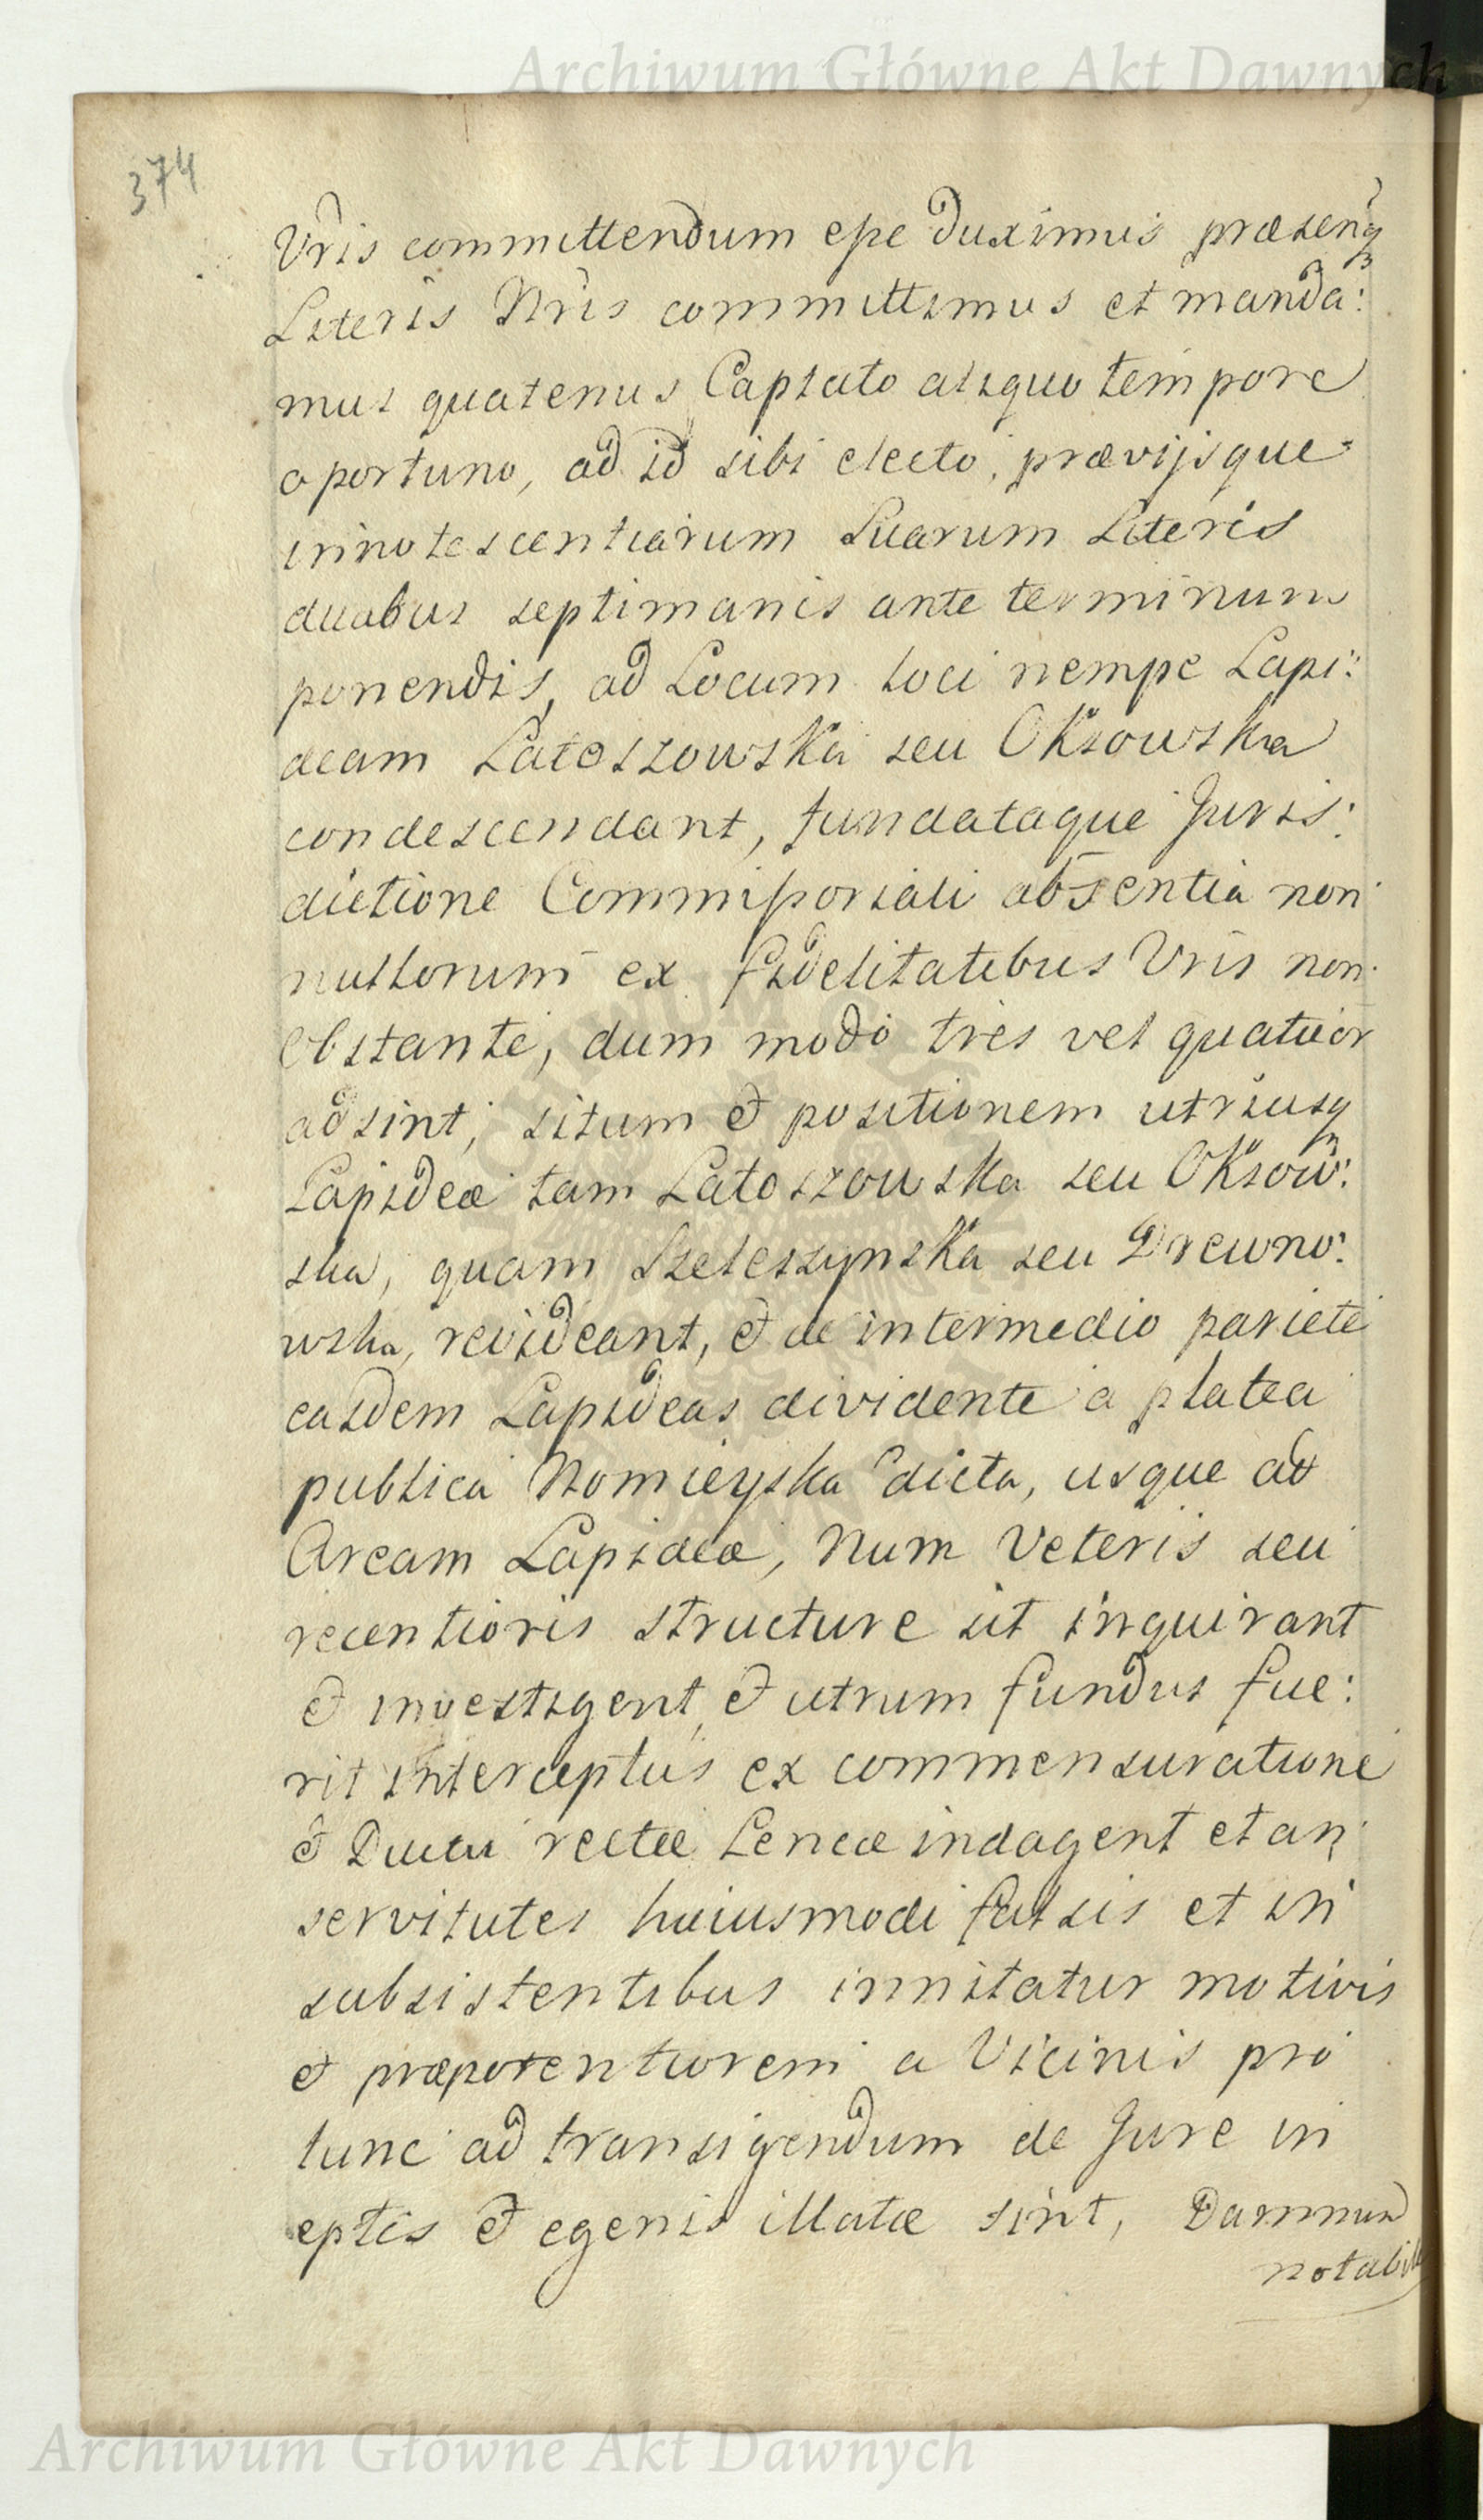 Archiwum Główne Akt Dawnych
374
Vr̃is committendum eſse duximus præsenq̃
Literis Nr̃is committimus et manda:
mus quatenus Captato aliquo tempore
oportuno, ad id sibi electo, prævijsque
innotescentiarum Suarum Literis
duabus septimanis ante terminum
ponendis, ad Locum loci nempe Lapi:
deam Latoszowska seu Oksowska
condescendant, fundataque Juris:
dictione Commiſsoriali absentia non
nullorum ex fidelitatibus Vris non
obstante, dum modo tres vel quatuor
adsint, situm & positionem utriusq
Lapideæ tam Latoszowska seu Oksow:
ska, quam Szeleszynska seu Drewno:
wska, revideant, & de intermedio pariete
easdem Lapideas dividente a platea
publica Nomieyska dicta, usque ad
Aream Lapideæ, Num Veteris seu
recentioris structure sit inquirant
& investigent, & utrum fundus fue:
rit interceptus ex commensuratione
& Ductu rectæ Leneæ indagent et an
servitutes huiusmodi falsis et in
subsistentibus innitatur motivis
& præpotentiorem a Vicinis pro
tunc ad transigendum de Jure in
eptis & egenis illatæ sint, Damnum
notabile
Archiwum Główne Akt Dawnych